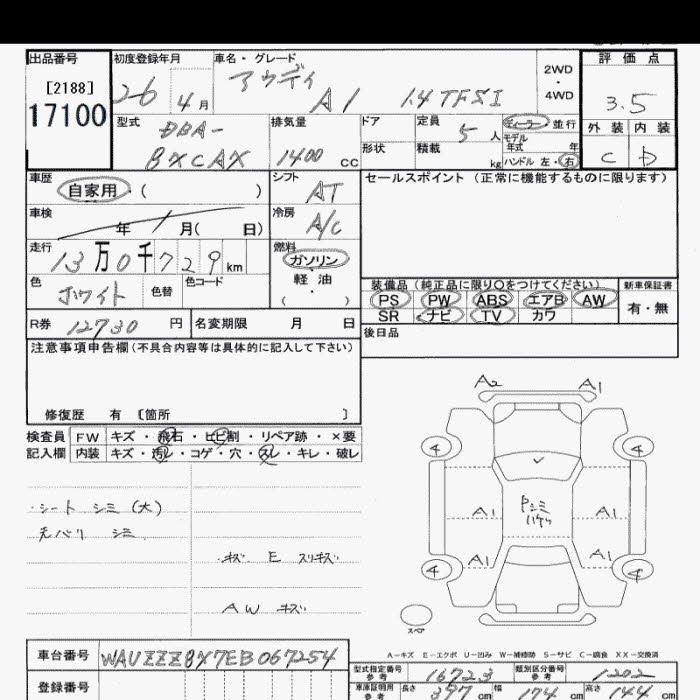 出品番号
[2188]
17100
初度登録年月
26 4月
車名・グレード
アウディ
A1 1.4 TFSI
2WD
・
4WD
評価点
3.5
外装 内装
C D
型式
DBA-
8XCAX
排気量
1400 cc
ドア
定員
5人
形状
積載
kg
ディーラー 並行
モデル
年式 年
ハンドル 左・右
車歴
自家用・( )
シフト
AT
セールスポイント (正常に機能するものに限ります)
車検
年 月( 日)
冷房
A/C
走行
13万0千729km
燃料
ガソリン
・
軽油
・
( )
色
ホワイト
色替
色コード
装備品 (純正品に限り〇をつけてください)
PS PW ABS エアB AW
SR ナビ TV カワ
新車保証書
有・無
R券 12730 円
名変期限 月 日
後日品
注意事項申告欄(不具合内容等は具体的に記入して下さい)
修復歴 有 〔箇所 〕
検査員
記入欄
FW キズ・飛石・ヒビ割・リペア跡・×要
内装 キズ・汚レ・コゲ・穴・スレ・キレ・破レ
・シート シミ(大)
天バリ シミ
・キズ E スリキズ
AW キズ
A2 A1
4 4
A1 A1
A1 A1
4 4
スペア
A-キズ E-エクボ U-凹み W-補修跡 S-サビ C-腐食 XX-交換済
車台番号 WAUZZZ8X7EB067254
登録番号
型式指定番号
参考
16723
類別区分番号
参考
1202
車庫証明用
参考
長さ 397 cm 幅 174 cm 高さ 144 cm